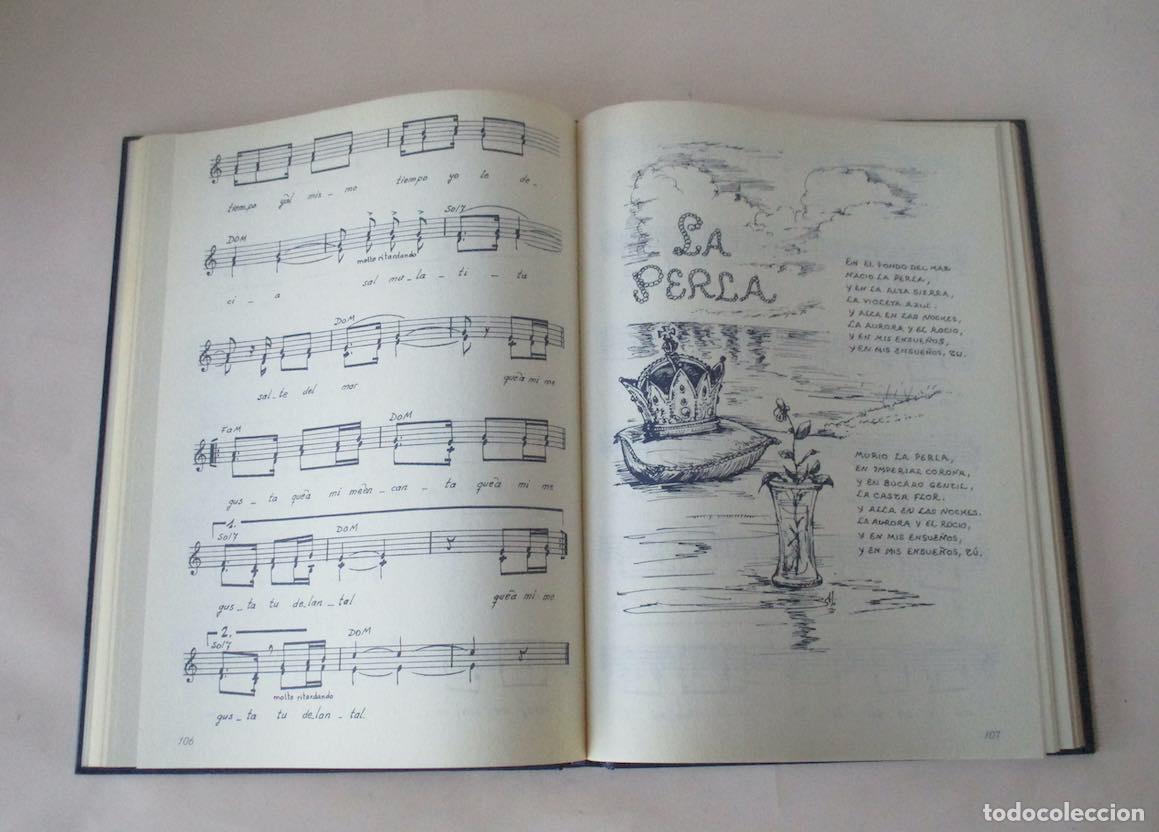 tiempo q͡al mis_mo tiempo yo le de_
DOM
Sol7
molto ritardando
ci_a sal mu_la_ti_ta
DoM
sal_te del mar que͡a mi me
FaM
DoM
gus_ta que͡a mi me͡en_can_ta que͡a mi me
1.
Sol7
DoM
gus_ta tu de_lan_tal que͡a mi me
2.
Sol7
DOM
molto ritardando
gus_ta tu de_lan_tal.
106
LA
PERLA
EN EL FONDO DEL MAR
NACIO LA PERLA,
Y EN LA ALTA SIERRA,
LA VIOLETA AZUL.
Y ALLA EN LAS NOCHES,
LA AURORA Y EL ROCIO,
Y EN MIS ENSUEÑOS,
Y EN MIS ENSUEÑOS, TÚ.
MURIO LA PERLA,
EN IMPERIAL CORONA,
Y EN BUCARO GENTIL,
LA CASTA FLOR.
Y ALLA EN LAS NOCHES.
LA AURORA Y EL ROCIO,
Y EN MIS ENSUEÑOS,
Y EN MIS ENSUEÑOS, TÚ.
107
todocoleccion